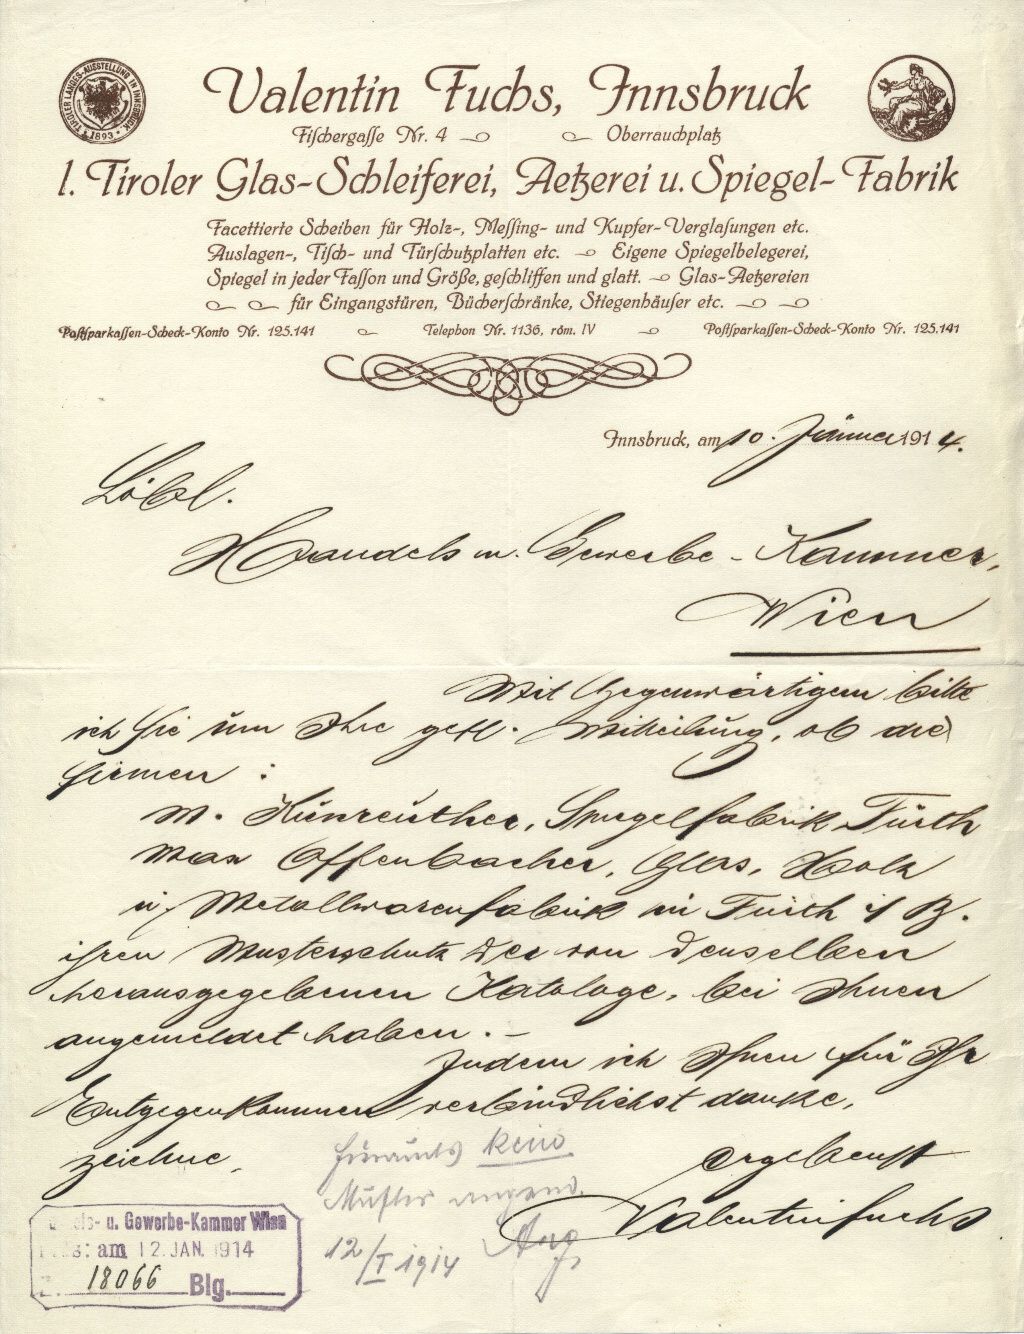 TIROLER LANDES-AUSSTELLUNG IN INNSBRUCK
1893
Valentin Fuchs, Innsbruck
Fischergasse Nr. 4 Oberrauchplatz
I. Tiroler Glas-Schleiferei, Aetzerei u. Spiegel-Fabrik
Facettierte Scheiben für Holz-, Messing- und Kupfer-Verglasungen etc.
Auslagen-, Tisch- und Türschutzplatten etc. Eigene Spiegelbelegerei,
Spiegel in jeder Fasson und Größe, geschliffen und glatt. Glas-Aetzereien
für Eingangstüren, Bücherschränke, Stiegenhäuser etc.
Postsparkassen-Scheck-Konto Nr. 125.141 Telephon Nr. 1136, röm. IV Postsparkassen-Scheck-Konto Nr. 125.141
Innsbruck, am 10. Jänner 1914.
Löbl.
Handels u. Gewerbe-Kammer,
Wien
Mit Gegenwärtigem bitte
ich Sie um Ihre gefl. Mitteilung, ob die
Firmen :
M. Künreuther, Spiegelfabrik Fürth
Max Offenbacher, Glas, Holz
u. Metallwarenfabrik in Fürth i/ B.
ihren Musterschutz der von denselben
herausgegebenen Kataloge, bei Ihnen
angemeldet haben. –
Indem ich Ihnen für Ihr
Entgegenkommen verbindlichst danke,
zeichne,
ergebenst
Valentin Fuchs
keine
Muster angem.
12/I 1914
u. Gewerbe-Kammer Wien
am 12. JAN. 1914
Z. 18066 Blg.